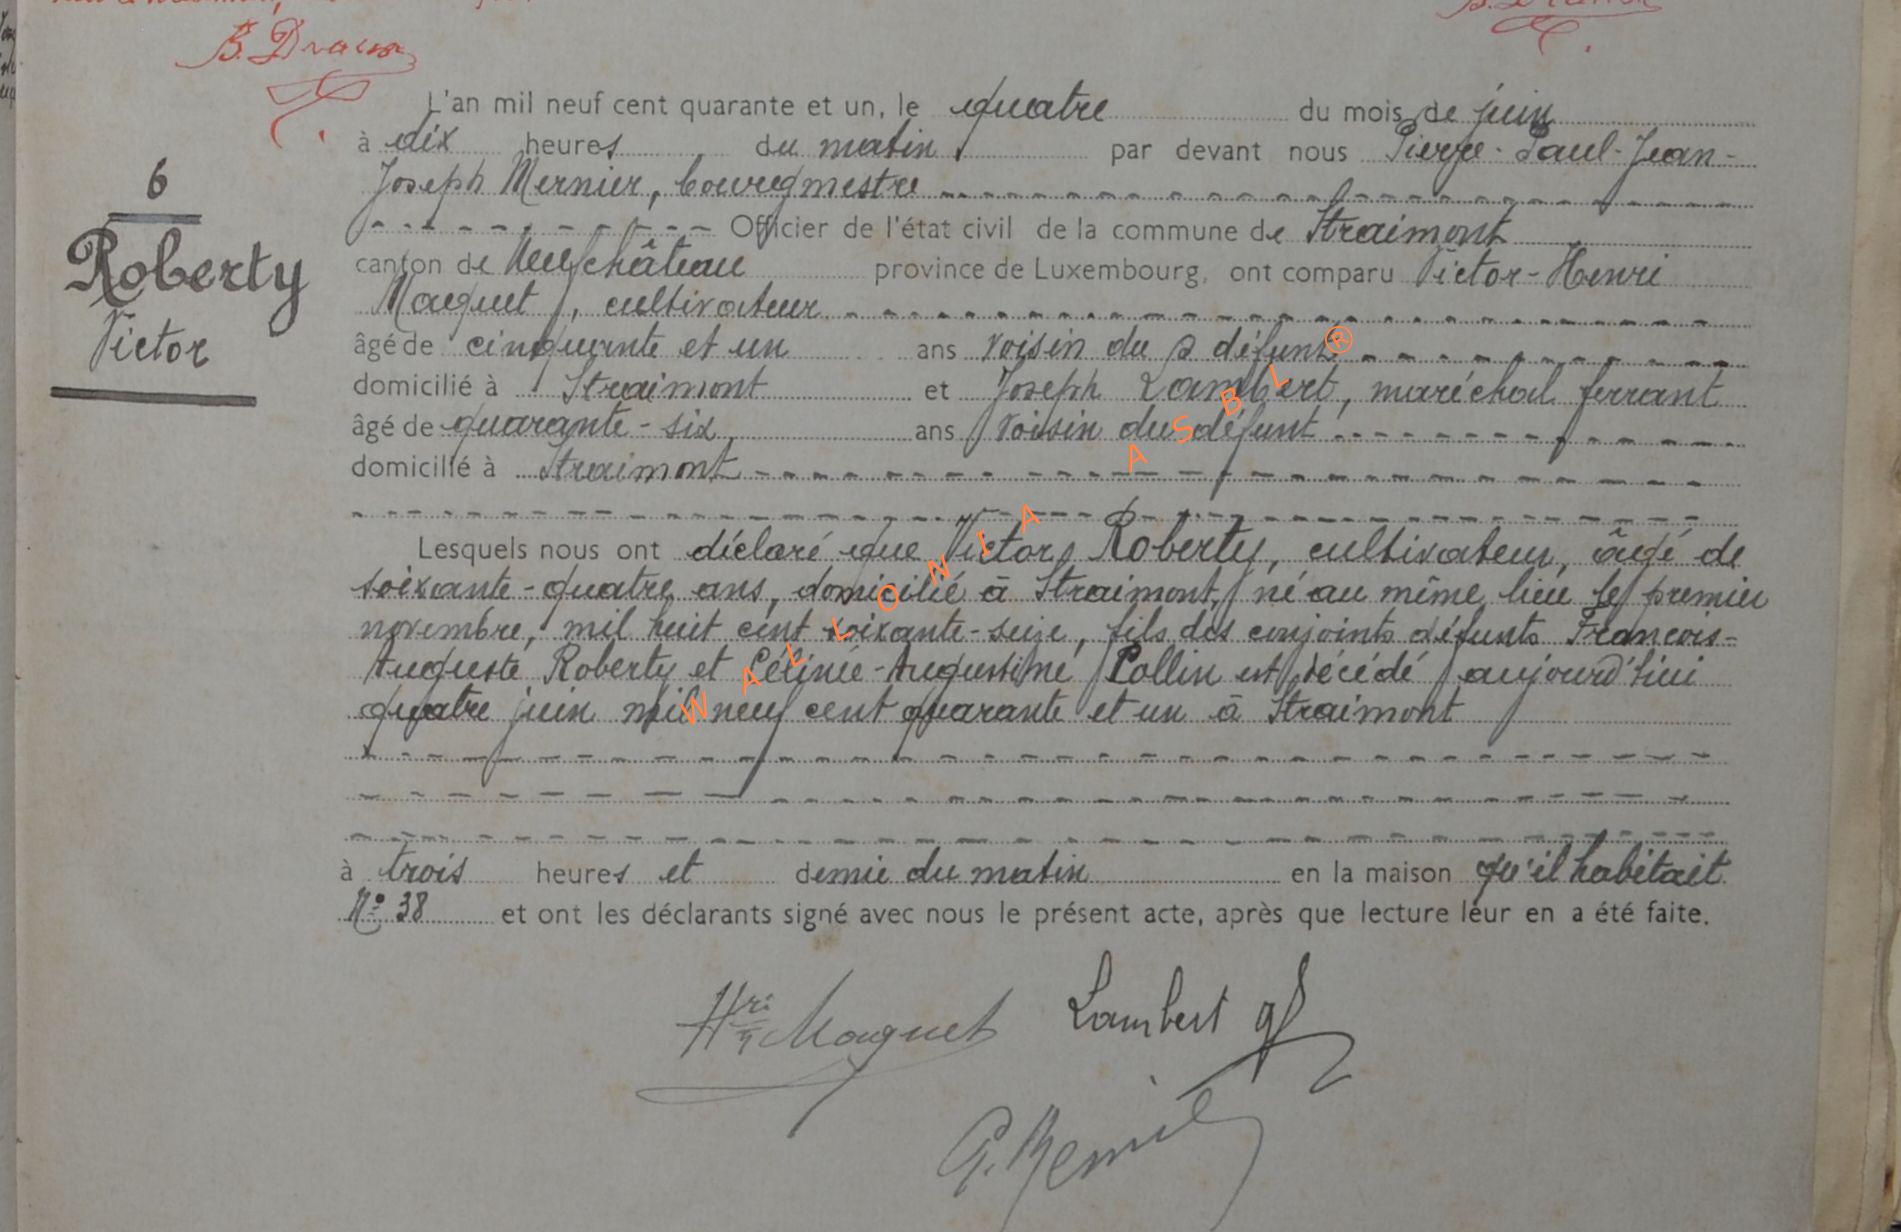 B. Draux
L'an mil neuf cent quarante et un, le quatre du mois de juin
à dix heures du matin par devant nous Pierre-Paul-Jean-
Joseph Mernier, bourgmestre
Officier de l'état civil de la commune de Straimont
canton de Neufchâteau province de Luxembourg, ont comparu Victor-Henri
Maquet, cultivateur
âgé de cinquante et un ans voisin du défunt
domicilié à Straimont et Joseph Lambert, maréchal ferrant
âgé de quarante-six ans voisin du défunt
domicilié à Straimont
Lesquels nous ont déclaré que Victor Roberty, cultivateur, âgé de
soixante-quatre ans, domicilié à Straimont, né au même lieu le premier
novembre, mil huit cent soixante-seize, fils des conjoints défunts François-
Auguste Roberty et Célinie-Augustine Pollin est décédé aujourd'hui
quatre juin mil neuf cent quarante et un à Straimont
à trois heures et demie du matin en la maison qu'il habitait
N° 38 et ont les déclarants signé avec nous le présent acte, après que lecture leur en a été faite.
6
Roberty
Victor
Hri Maquet Lambert J
P. Mernier
WALLONIA ASBL ®